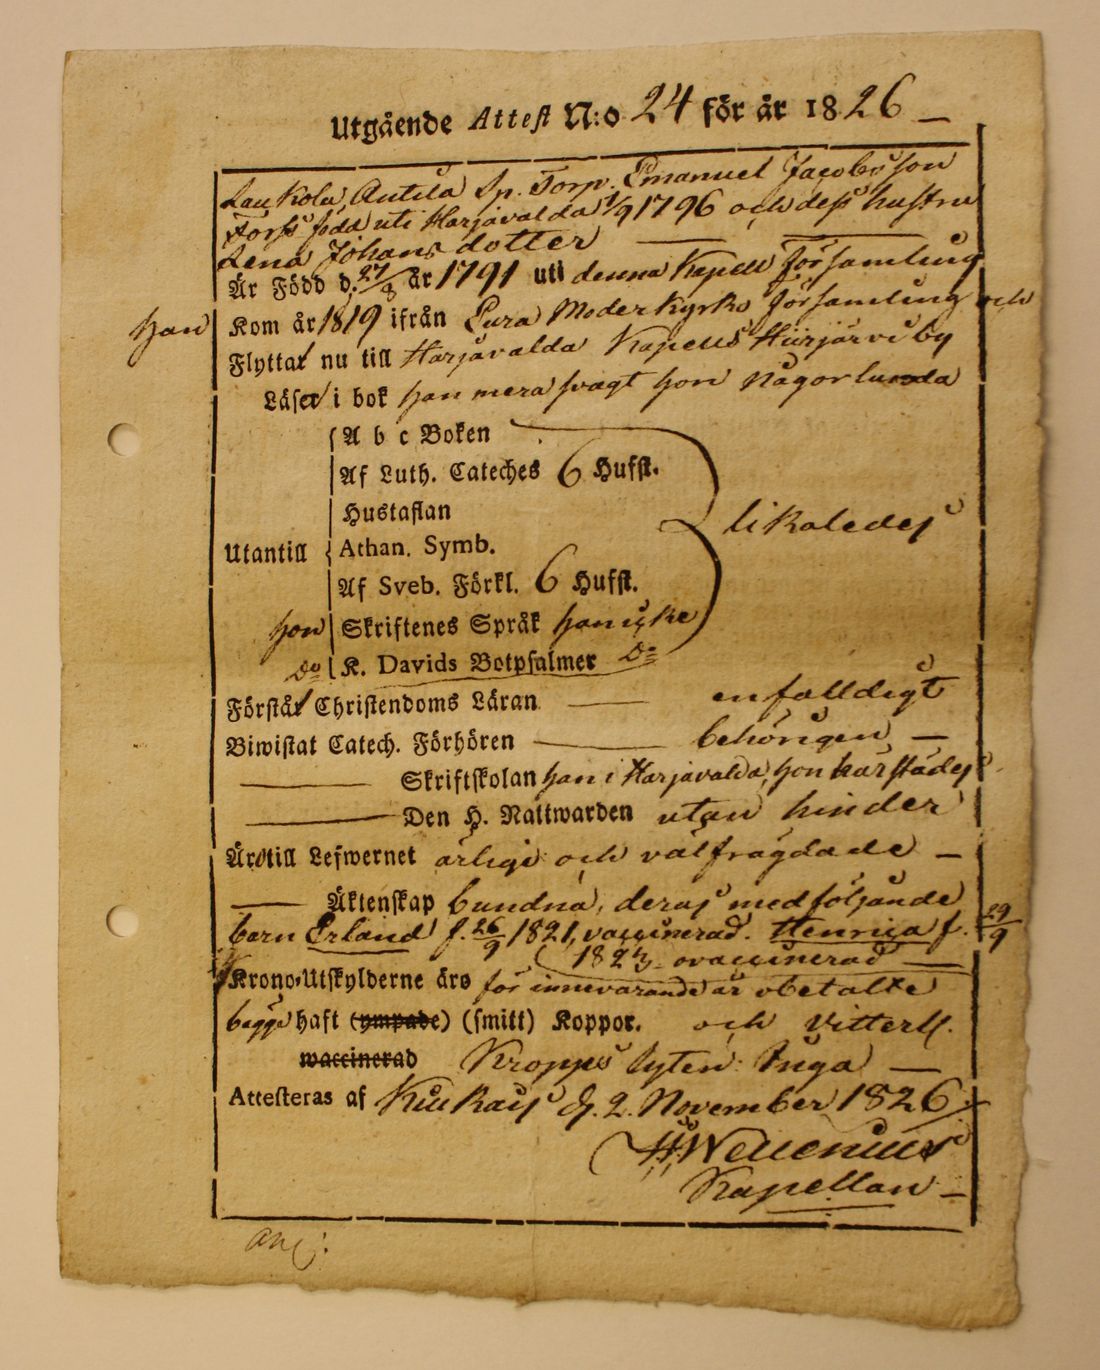 Utgående Attest N:o 24 för år 1826 —
Laukola, Antila Sp. Torp. Emanuel Jacobsson
Forss född uti Harjavalda 1/9 1796 och dess hustru
Lena Johans dotter
Är Född d. 27/8 år 1791 uti denna Kapell Församling
han Kom år 1819 ifrån Eura Moder Kyrko församling och
Flyttat nu till Harjavalda Kapells Hiirjärvi by
Läser i bok han mera svagt hon någorlunda
A b c Boken
Af Luth. Cateches 6 Hufst.
Hustaflan
likaledes
Utantill Athan. Symb.
Af Sveb. Förkl. 6 Hufst.
hon Skriftenes Språk han icke
Do K. Davids Botpsalmer Do
Förstår Christendoms Läran — enfalldigt
Biwistat Catech. Förhören — behörigen —
— Skriftskolan han i Harjavalda, hon härstädes
— Den H. Nattwarden utan hinder
Äro till Lefwernet ärlige och välfrägdade —
— Äktenskap bundna, deras medföljande
barn Erland f. 26/9 1821, vaccinerad. Henrica f. 29/9
1823 ovaccinerad —
Krono-Utskylderne äro för innevarande år obetalte
begge haft (ympade) (smitt) Koppor. och Vitterl.
waccinerad Kropps lyten Inga —
Attesteras af Kiukais d. 2. November 1826
Wellenius
Kapellan —